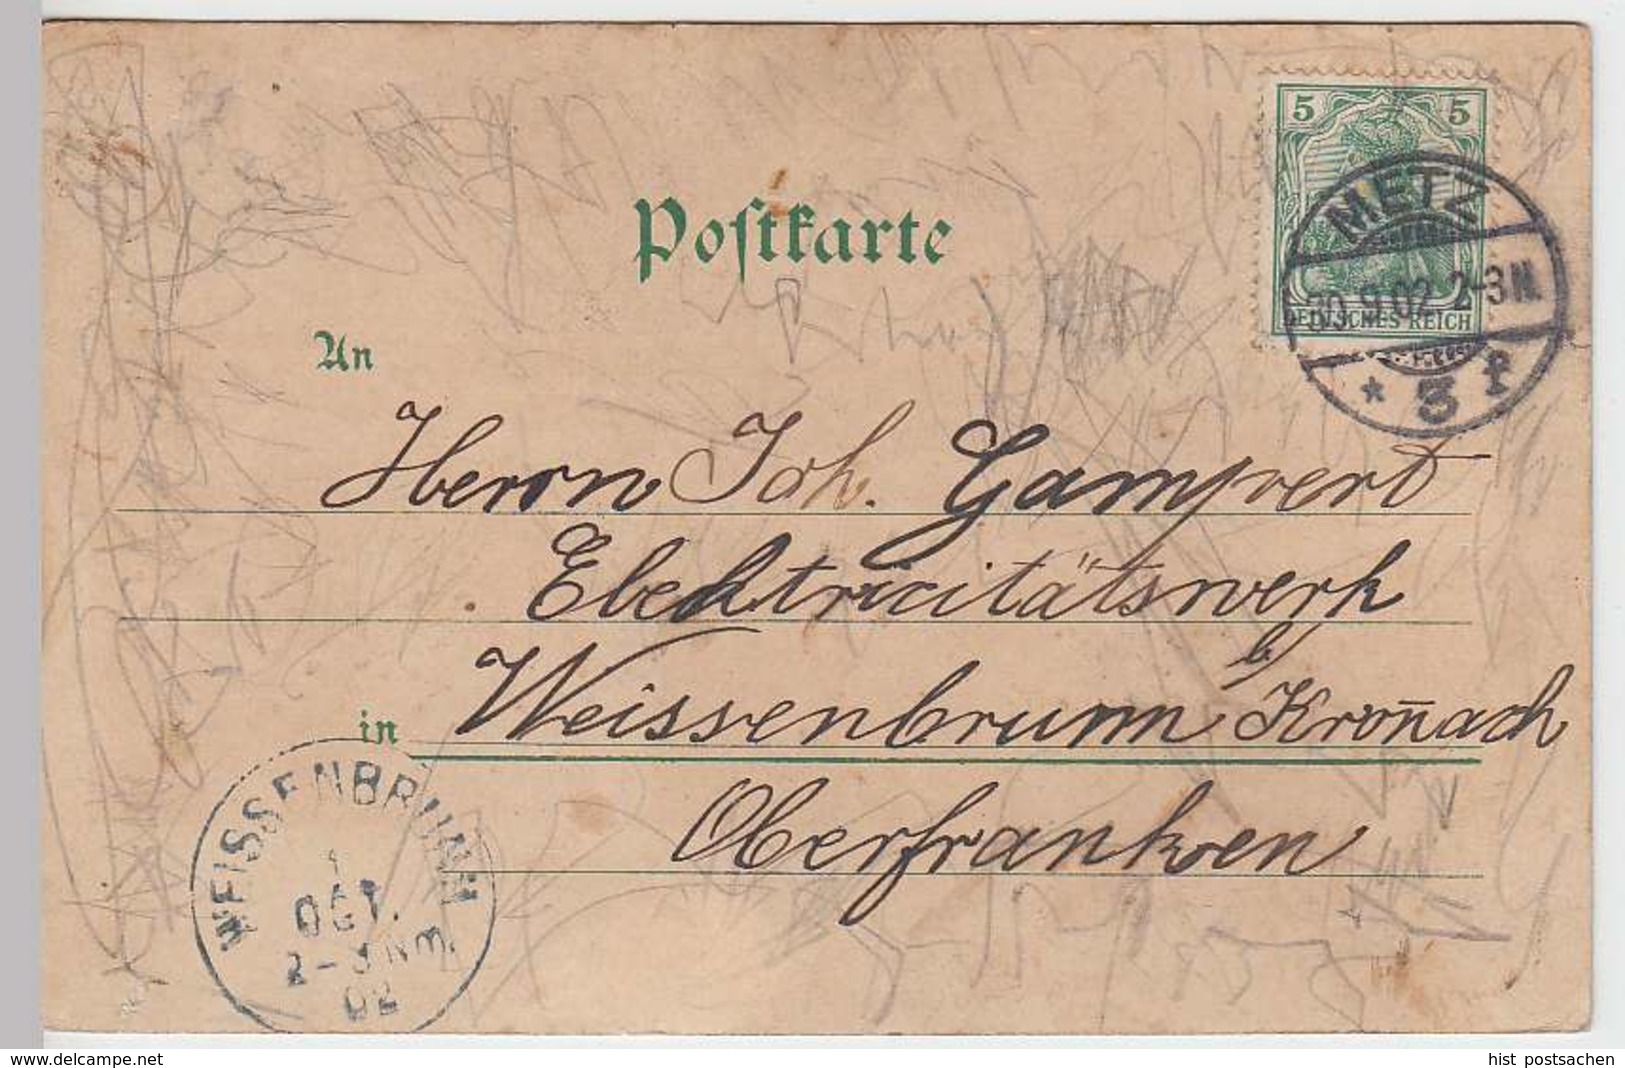 5 5
METZ
30.9.02. 2-3 N.
DEUTSCHES REICH
* 3 f
Postkarte
An
Herrn Joh. Gampert
Elektricitätswerk
in Weissenbrunn b/ Kron̄ach
Oberfranken
WEISSENBRUNN
1
OCT.
2-3 Nm.
02
www.delcampe.net
hist_postsachen